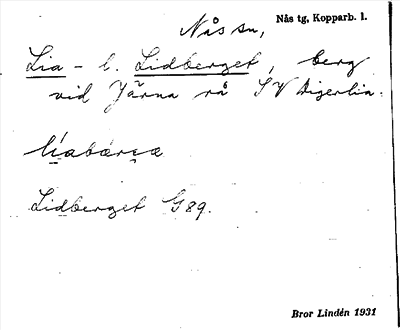 Nås sn, Nås tg, Kopparb. l.
Lia - l. Lidberget, berg
vid Järna rå SV Digerlia.
líabærꞬæ
Lidberget G 89.
Bror Lindén 1931